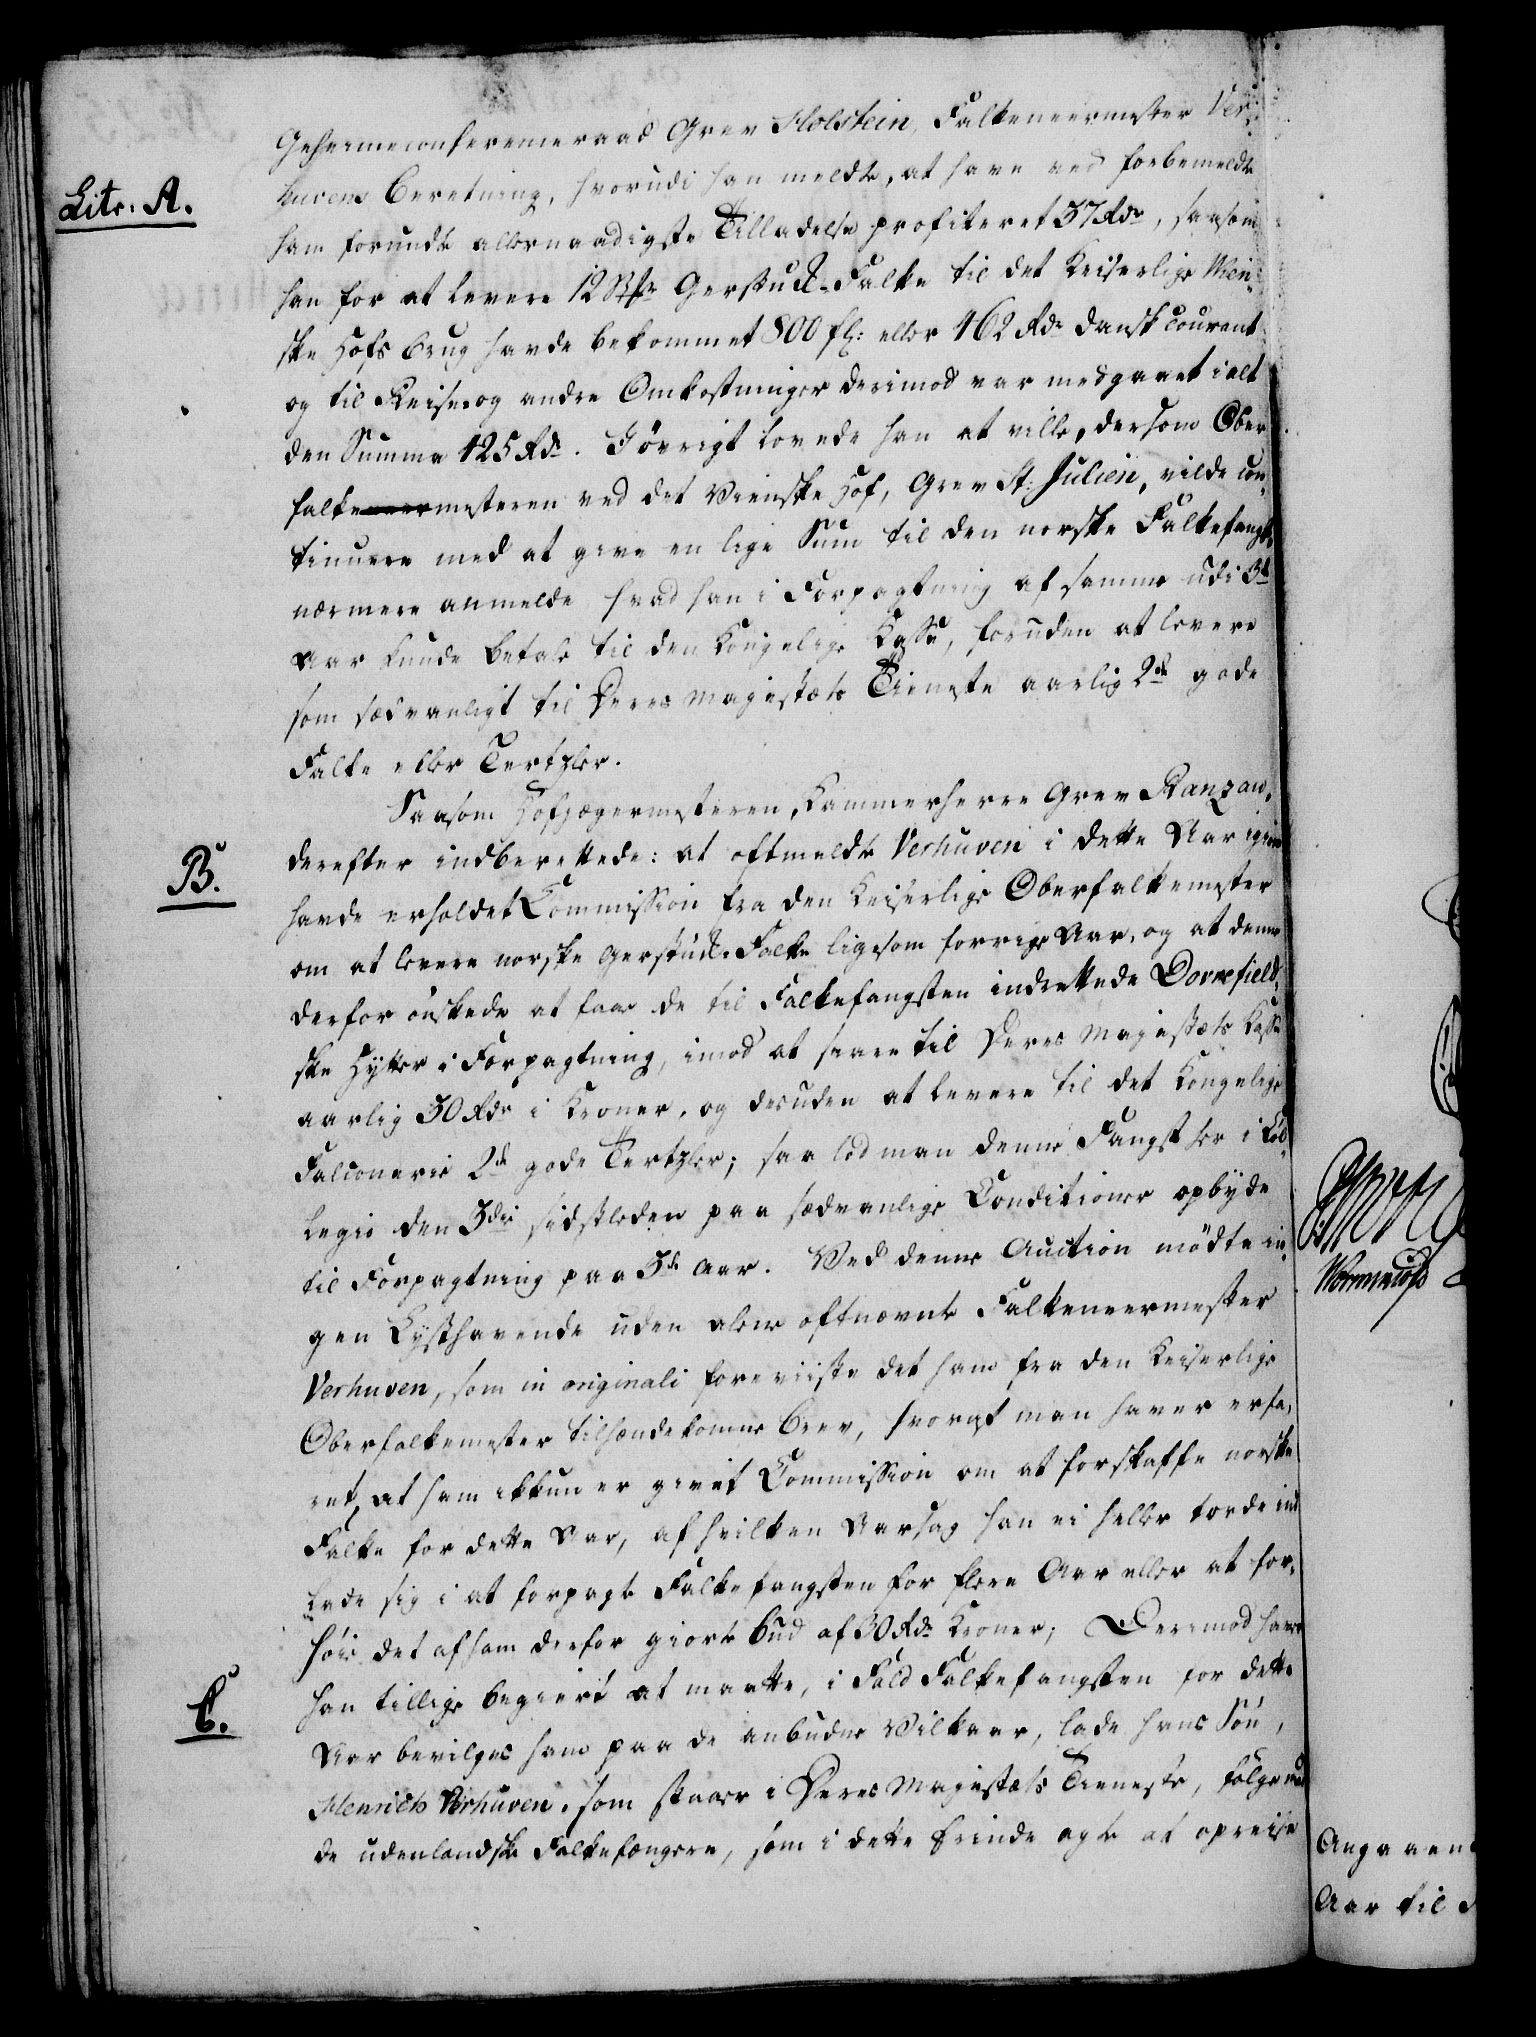 Geheimeconferenceraad Grev Holstein, Falkeneermester Ver-
huvens Beretning, hvorudi han meldte, at have ved forbemeldte
Litr. A.
ham forundte allernaadigste Tilladelse profiteret 37 Rdr, saasom
han for at levere 12 Gerstuck-Falke til det Keiserlige Wien-
ske Hofs Brug havde bekommet 800 fl: eller 462 Rdr dansk Courant
og til Reise- og andre Omkostninger derimod var medgaaet i alt
den Summa 425 Rdr. I øvrigt lovede han at ville, dersom Ober-
falkemesteren ved det Wienske Hof, Grev St: Julien, vilde con-
tinuere med at give en lige Sum til den norske Falkefangst,
nærmere anmelde hvad han i Forpagtning af samme udi 3de
Aar kunde betale til den Kongelige Kasse, foruden at levere
som sædvanligt til Deres Majestæts Tieneste aarlig 2de gode
Falke eller Tertzler.
Saasom Hofjægermesteren, Kammerherre Grev Ranzau,
B.
derefter indberettede: at oftmeldte Verhuven i dette Aar igien
havde erholdet Commission fra den Keiserlige Oberfalkemester
om at levere norske Gerstuck-Falke ligesom forrige Aar, og at denne
derfor ønskede at faae de til Falkefangsten indrettede Dovrefield-
ske Hytter i Forpagtning, imod at svare til Deres Majestæts Kasse
aarlig 30 Rdr i Kroner, og desuden at levere til det Kongelige
Falconerie 2de gode Tertzler; saa lod man denne Fangst her i Col-
legio den 3die sidstleden paa sædvanlige Conditioner opbyde
til Forpagtning paa 3de Aar. Ved denne Auction mødte in-
gen Lysthavende uden alene oftnævnte Falkeneermester
Verhuven, som in originali foreviiste det ham fra den Keiserlige
Oberfalkemester tilhændekomne Brev, hvoraf man haver erfa-
ret, at ham ikkun er givet Commission om at forskaffe norske
Falke for dette Aar, af hvilken Aarsag han ei heller torde ind-
lade sig i at forpagte Falkefangsten for flere Aar eller at for-
høie det af ham derfor giorte Bud af 30 Rdr Kroner; Derimod haver
C.
han tillige begiert at maatte, i Fald Falkefangsten for dette
Aar bevilges ham paa de anbudne Vilkaar, lade hans Søn,
Henrich Verhuven, som staaer i Deres Majestæts Tieneste, følge med
de udenlandske Falkefængere, som i dette Ærinde agte at opreise
Angaaen
Aar til